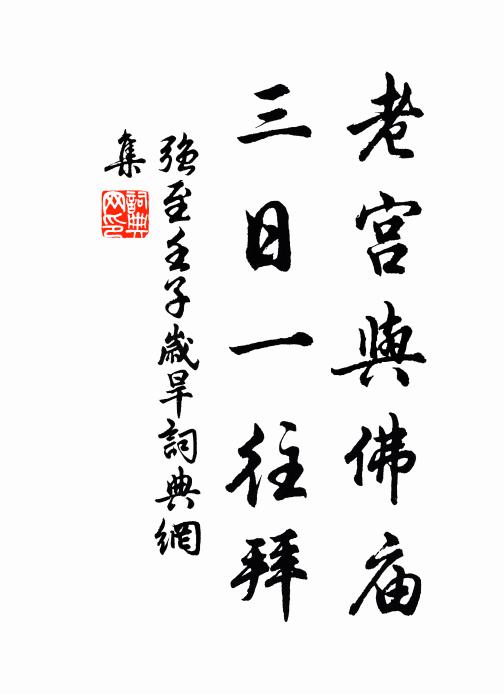 老宫與佛庙
三日一往拜
強至壬子歲旱詞典網
集
詞典
网印